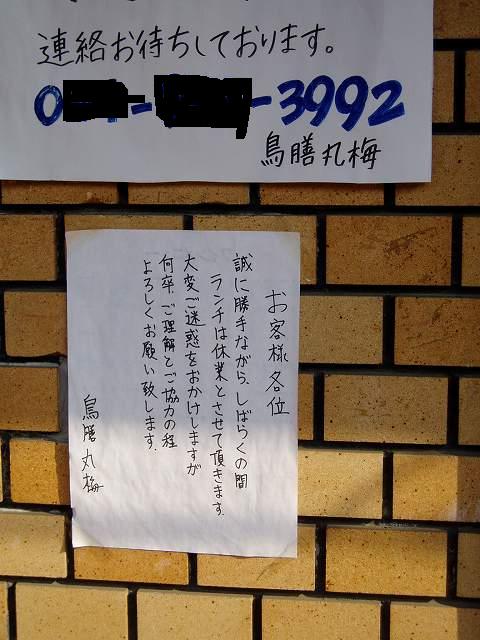 連絡お待ちしております。
0 - -3992
鳥膳丸梅
お客様各位
誠に勝手ながら、しばらくの間
ランチは休業とさせて頂きます。
大変ご迷惑をおかけしますが
何卒ご理解とご協力の程
よろしくお願い致します。
鳥膳丸梅